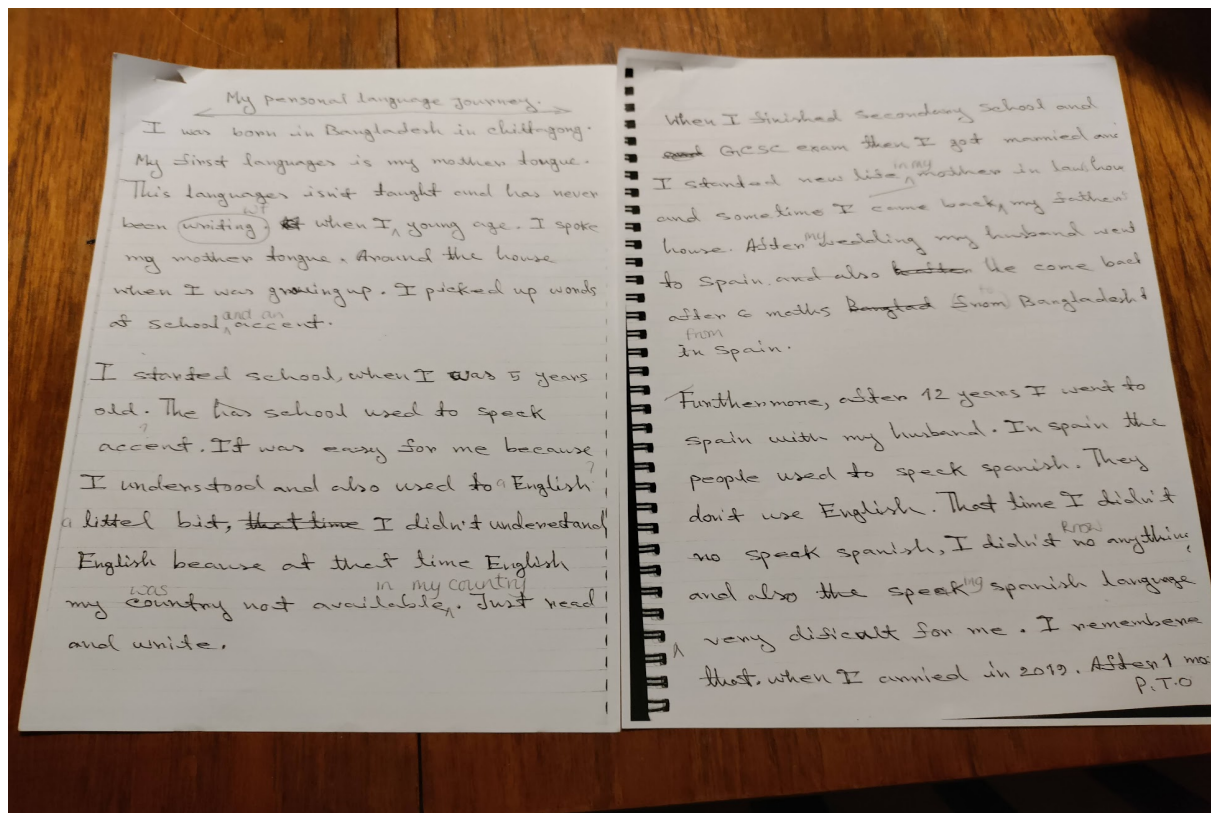 My personal language Journey.
I was born in Bangladesh in chittagong.
My first languages is my mother tongue.
This languages isn't taught and has never
wt
been writing when I ^ young age. I spoke
my mother tongue. Around the house
when I was growing up. I picked up words
and an
at school ^ accent.
I started school, when I was 5 years
old. The has school used to speek
?
accent. It was easy for me because
?
I understood and also used to a English
a littel bit, that time I didn't underestand
English beause at that time English
was in my country
my country not available ^. Just read
and write.
When I finished Secondary School and
and GCSC exam then I got married and
in my
I started new life ^ mother in law, hou
and sometime I came back ^ my father's
my
house. After wedding my husband went
to Spain. and also He come back
to
after 6 moths Banglad from Bangladesh
from
in Spain.
Furthermore, after 12 years I went to
spain with my husband. In spain the
people used to speek spanish. They
don't use English. That time I didn't
know
no speak spanish, I didn't no anything
ing
and also the speek spanish language
^ very dificult for me. I remembere
that. when I arrived in 2019. After 1 mo
P.T.O